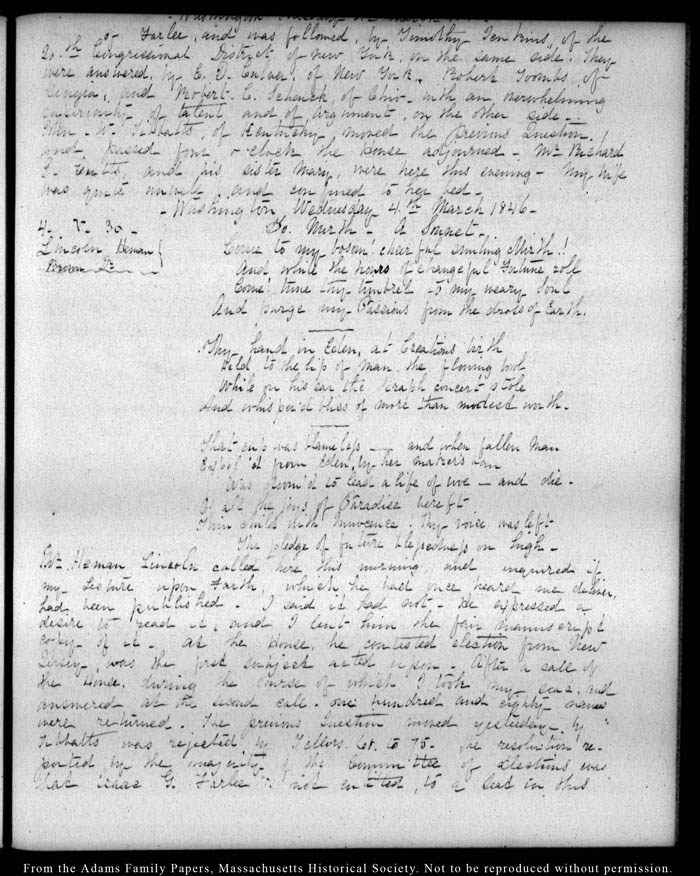 Washington Tuesday 3d March
of Farlee, and was followed, by Timothy Jenkins, of the
20.th Congressional District of New York, on the same side. They
were answered, by E. D. Culver, of New York, Robert Toombs, of
Georgia, and Robert C. Schenck, of Ohio – with an overwhelming
superiority of talent and of argument, on the other side –
John W. Tibbatts, of Kentucky, moved the previous Question,
and passed four o-clock the House adjourned – Mr Richard
D. Cutts, and his sister Mary, were here this evening – My wife
was quite unwell, and confined to her bed –
– Washington, Wednesday 4.th March 1846 –
4. V. 30 –
Lincoln Heman
Brown
To. Mirth – A Sonnet –
Come to my bosom! chearful smiling Mirth!
And while the hours of changeful Fortune roll
Come! tune thy timbrel to my weary Soul
And purge my Passions from the dross of Earth.
Thy hand in Eden, at Creations birth
Held to the lip of man the flowing bowl
While on his ear the Seraph concert stole
And whisper'd bliss of more than modest worth.
That cup was blameless – and when fallen Man
Expell'd from Eden, by her maker's ban
Was doom'd to lead a life of woe – and die –
Of all the joys of Paradise bereft
Thin child with Innocence! Thy voice was left
The pledge of future blessedness on high –
Mr Heman Lincoln called here this morning, and enquired if
my Lecture upon Faith, which he had once heard me deliver,
had been published – I said it had not, – He expressed a
desire to read it, and I lent him the fair manuscript
copy of it – At the House, the contested election from New
Jersey, was the first subject acted upon – After a call of
the House, during the course of which I took my seat, and
answered at the second call – one hundred and eighty names
were returned. The previous Question moved yesterday by
Tibbatts was rejected by Tellers to 75 – The resolution re-
ported by the majority of the committee of Elections was
that Isaac G. Farlee is not entitled, to a seat in this
From the Adams Family Papers, Massachusetts Historical Society. Not to be reproduced without permission.